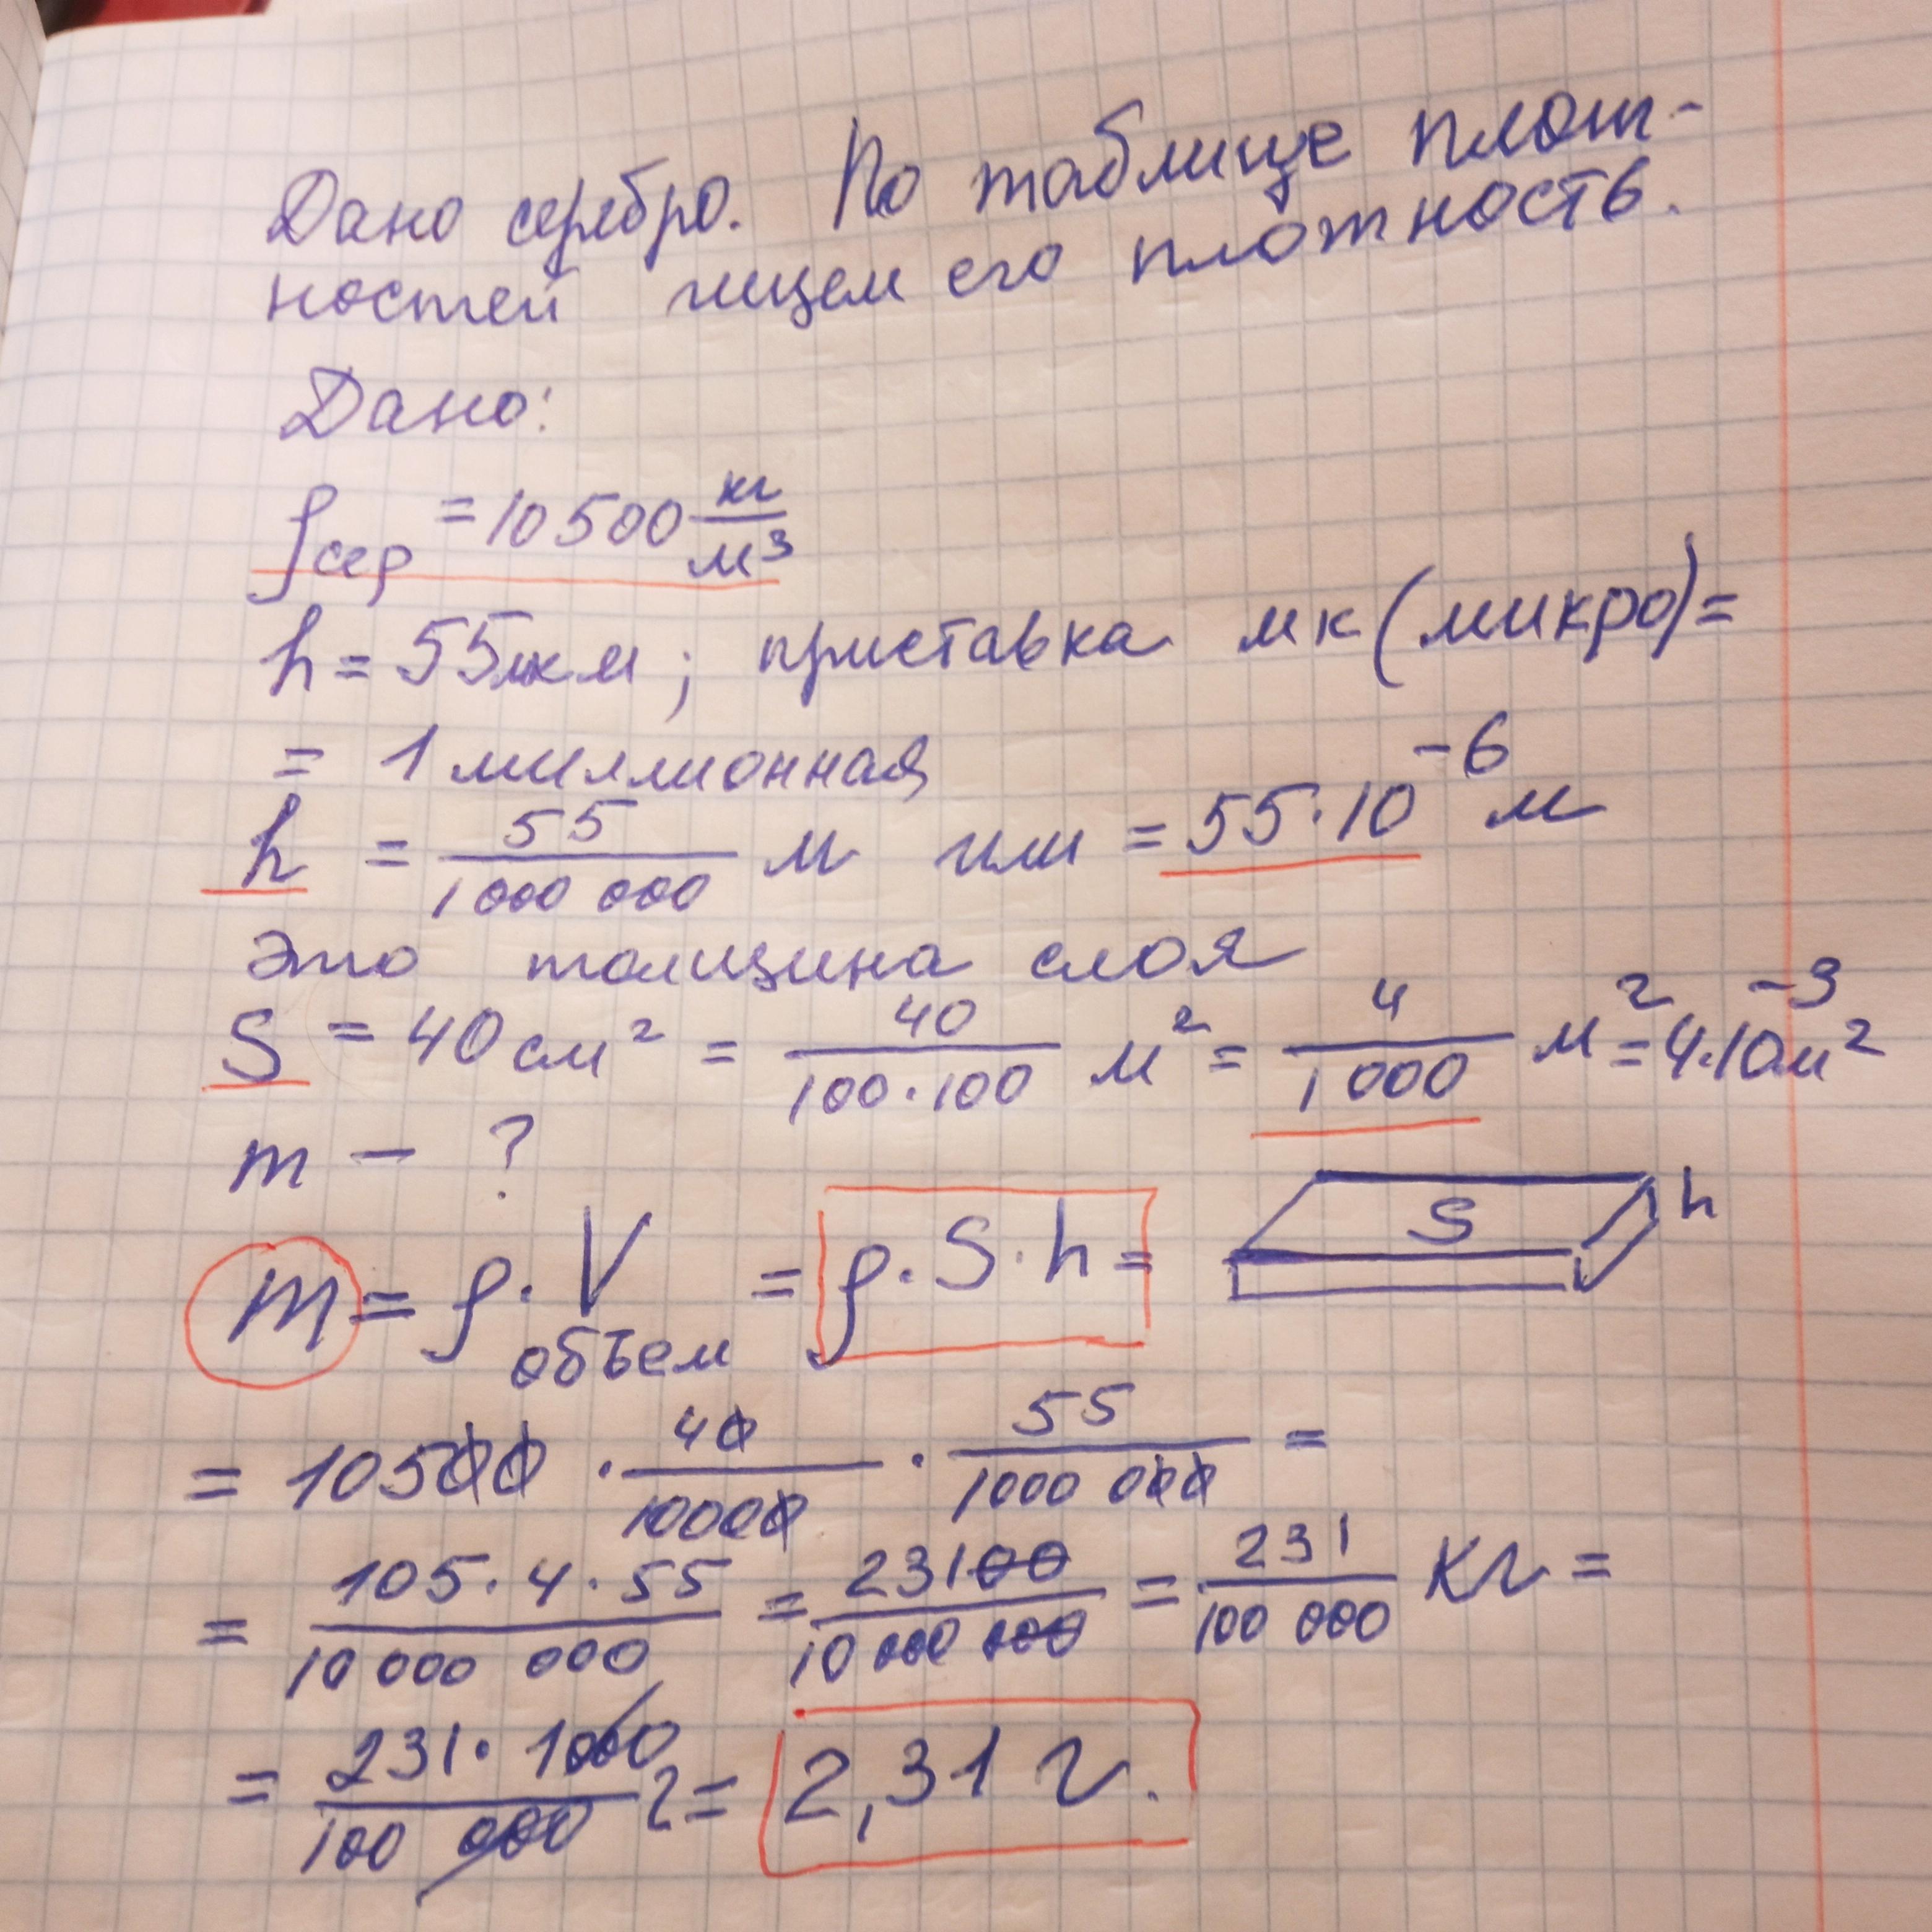 Дано серебро. По таблице плот-
ностей ищем его плотность.
Дано:
ρсер = 10 500 кг/м³
h = 55мкм ; приставка мк (микро) =
= 1 миллионная
h = 55/1 000 000 м или = 55·10⁻⁶ м
Это толщина слоя
S = 40 см² = 40/100·100 м² = 4/1 000 м² = 4·10⁻³м²
m – ?
m = ρ · V объем = ρ · S · h =
S h
= 10500 · 40/10000 · 55/1000 000 =
= 105·4·55/10 000 000 = 23100/10 000 000 = 231/100 000 кг =
= 231·1000/100 000 г = 2,31 г.